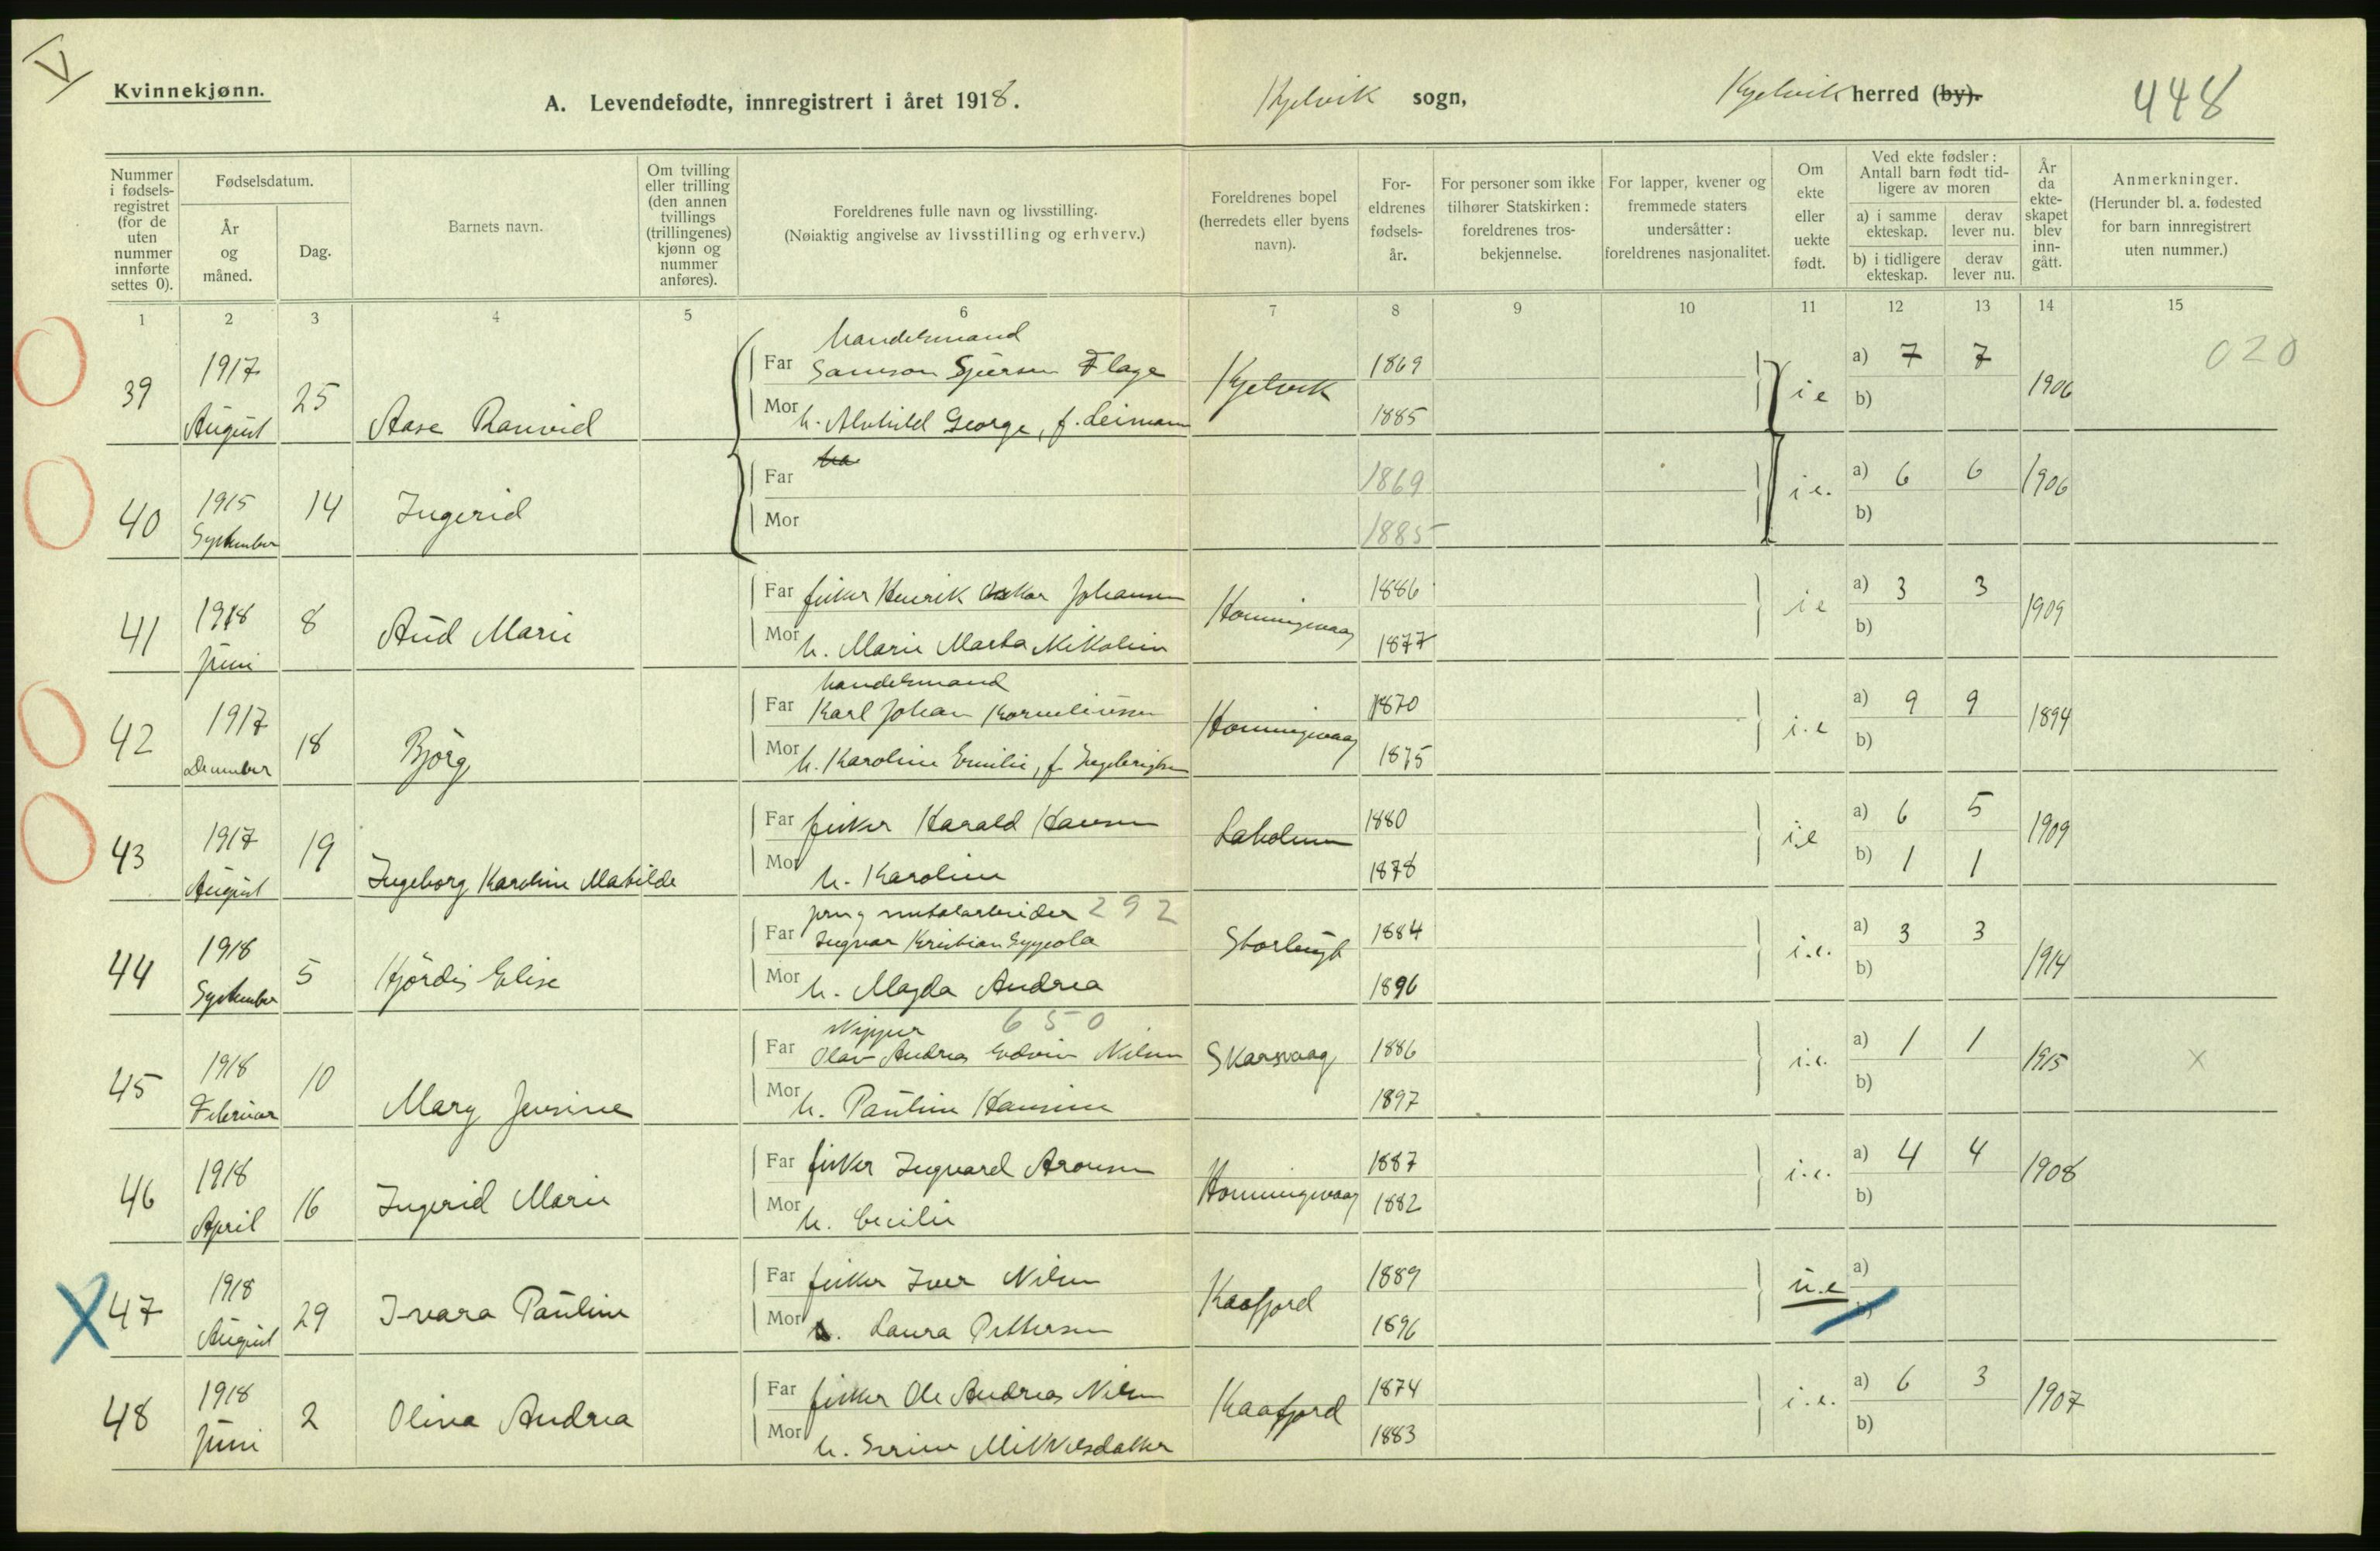 V
Kvinnekjønn.
A. Levendefødte, innregistrert i året 1918.
Kjelvik sogn,
Kjelvik herred (by).
448
Nummer i fødsels-registret (for de uten nummer innførte settes 0).
Fødselsdatum.
År og måned.
Dag.
Barnets navn.
Om tvilling eller trilling (den annen tvillings (trillingenes) kjønn og nummer anføres).
Foreldrenes fulle navn og livsstilling.
(Nøiaktig angivelse av livsstilling og erhverv.)
Foreldrenes bopel (herredets eller byens navn).
For-eldrenes fødsels-år.
For personer som ikke tilhører Statskirken: foreldrenes tros-bekjennelse.
For lapper, kvener og fremmede staters undersåtter: foreldrenes nasjonalitet.
Om ekte eller uekte født.
Ved ekte fødsler: Antall barn født tid-ligere av moren
a) i samme ekteskap.
derav lever nu.
b) i tidligere ekteskap.
derav lever nu.
År da ekte-skapet blev inn-gått.
Anmerkninger.
(Herunder bl. a. fødested for barn innregistrert uten nummer.)
1 2 3 4 5 6 7 8 9 10 11 12 13 14 15
handelsmand
39 1917 August 25 Aase Ranvid
Far Samson Sjursen Flage Kjelvik 1869 i e a) 7 7 1906 020
Mor h. Alvhild George, f. Leimann 1885 b)
40 1915 September 14 Ingerid
Far 1869 i e. a) 6 6 1906
Mor 1885 b)
41 1918 Juni 8 Aud Marie
Far fisker Henrik Oskar Johansen Honningsvaag 1886 i e a) 3 3 1909
Mor h. Marie Marta Nikoline 1877 b)
handelsmand
42 1917 December 18 Bjørg
Far Karl Johan Korneliussen Honningsvaag 1870 i. e a) 9 9 1894
Mor h. Karoline Emilie, f. Ingebrigtsen 1875 b)
43 1917 August 19 Ingeborg Karoline Matilde
Far fisker Harald Hansen Laholmen 1880 i.e a) 6 5 1909
Mor h. Karoline 1878 b) 1 1
292
44 1918 September 5 Hjørdis Elise
Far Ingvar Kristian 1884 i.e. a) 3 3 1914
Mor h. Magda Andrea 1896 b)
skipper 650
45 1918 Februar 10 Mary Jensine
Far Olav Andreas Edvin Nilsen Skarsvaag 1886 i.e. a) 1 1 1915 x
Mor h. Pauline Hansine 1897 b)
46 1918 April 16 Ingerid Marie
Far fisker Ingvard Aronsen Honningsvaag 1887 i.e. a) 4 4 1908
Mor h. Cecilie 1882 b)
X 47 1918 August 29 Ivara Pauline
Far fisker Iver Nilsen Kaafjord 1889 u.e a)
Mor Laura Pettersen 1896 b)
48 1918 Juni 2 Olina Andrea
Far fisker Ole Andreas Nilsen Kaafjord 1874 i.e. a) 6 3 1907
Mor h. Serine Mikkelsdatter 1883 b)